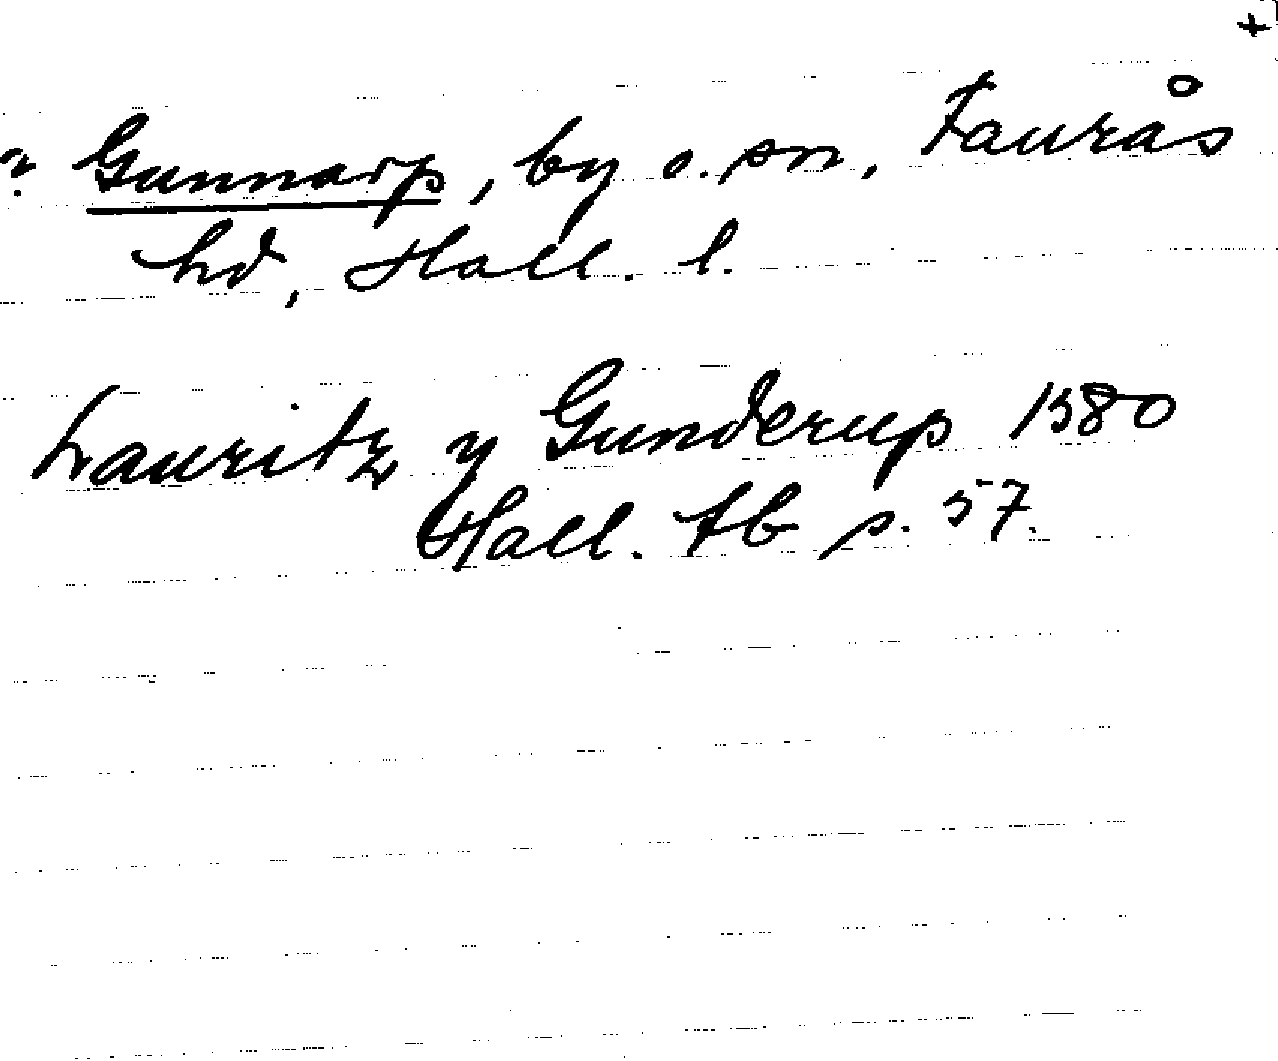 +
? Gunnarp, by o. sn, Faurås
hd, Hall. l.
Lauritz y Gunderup 1580
Hall. tb s. 57.